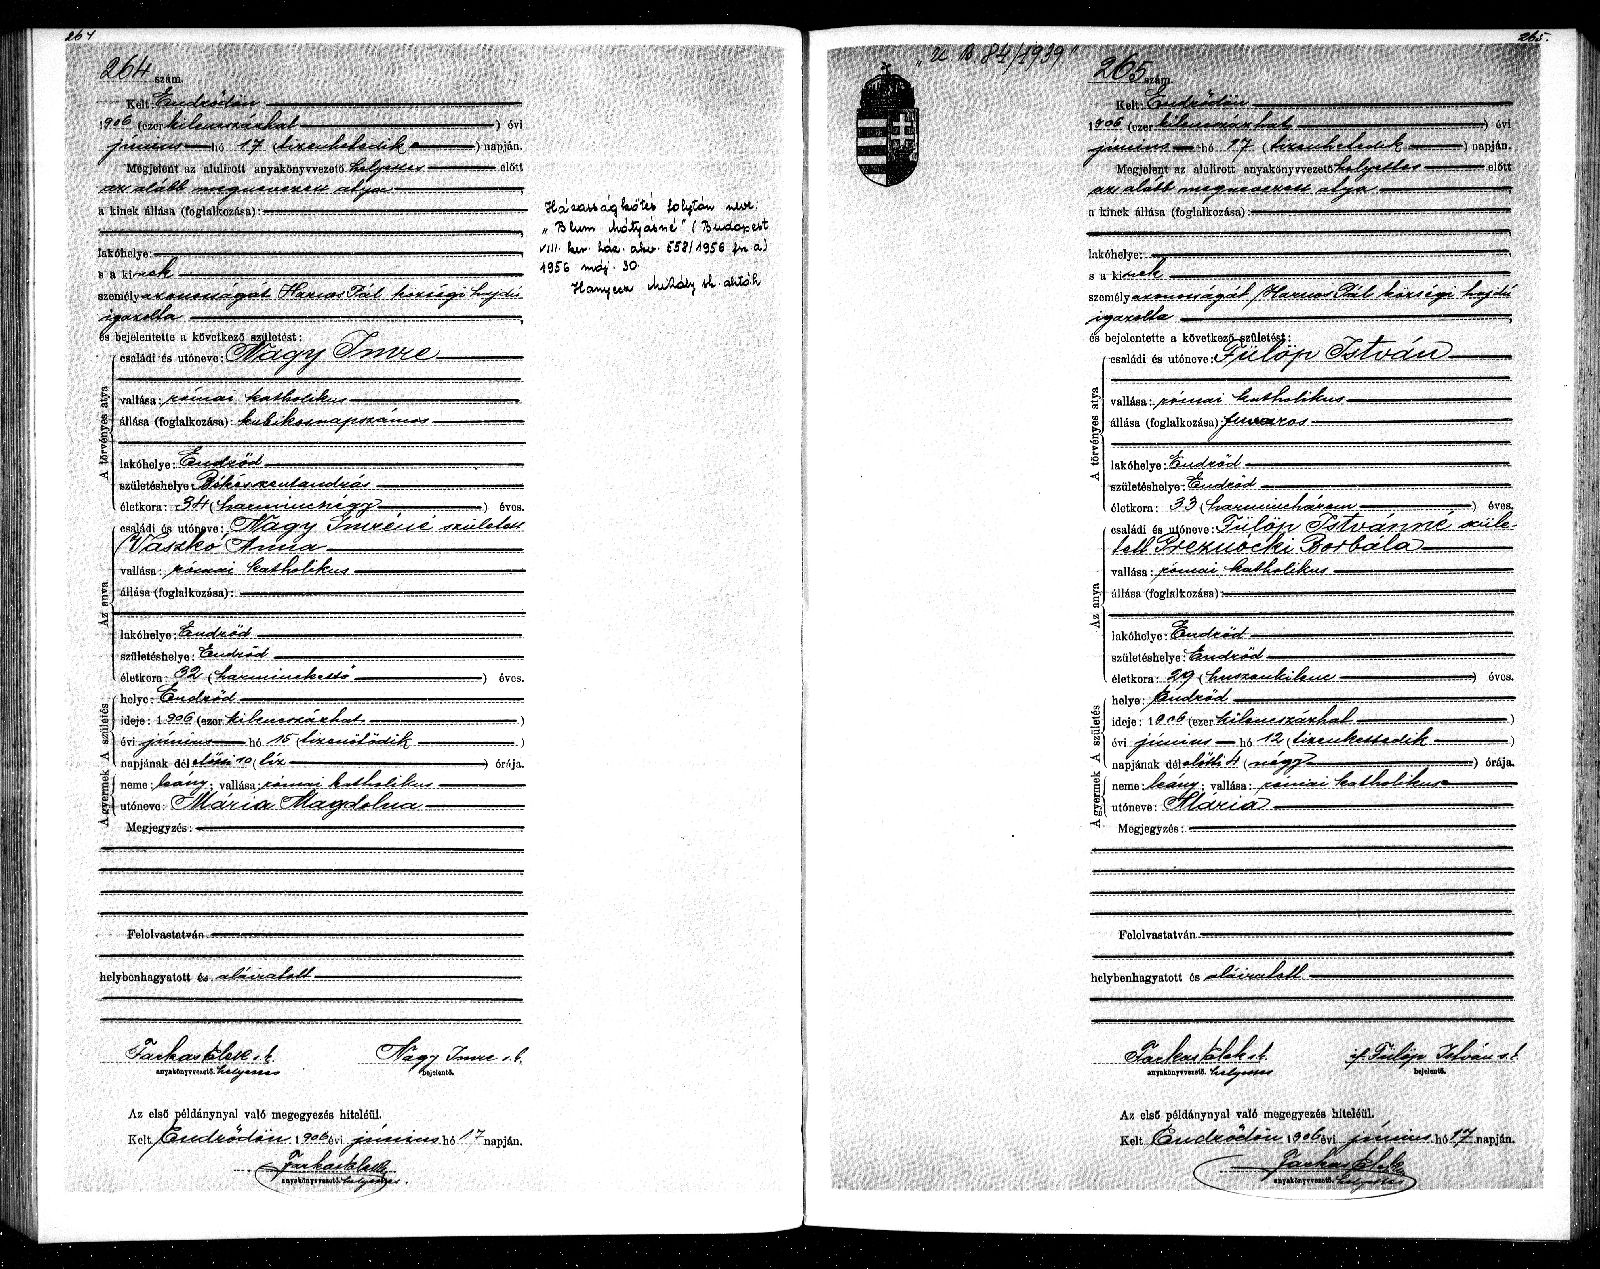 264
264 szám.
Kelt Endrődön
1906 (ezer kilencszázhat ) évi
június hó 17 (tizenhetedik ) napján.
Megjelent az alulirott anyakönyvvezető helyettes előtt
az alább megnevezett atya
a kinek állása (foglalkozása):
lakóhelye:
s a kinek
személyazonosságát Harcos Pál községi hajdú
igazolta
és bejelentette a következő születést:
A törvényes atya
családi és utóneve: Nagy Imre
vallása: római katholikus
állása (foglalkozása): kubikosnapszámos
lakóhelye: Endrőd
születéshelye: Békésszentandrás
életkora: 34 (harmincnégy ) éves.
Az anya
családi és utóneve: Nagy Imréné született
Vaszkó Anna
vallása: római katholikus
állása (foglalkozása):
lakóhelye: Endrőd
születéshelye: Endrőd
életkora: 32 (harminckettő ) éves.
A születés
helye: Endrőd
ideje: 1906 (ezer kilencszázhat )
évi június hó 15 (tizenötödik )
napjának délelőtti 10 (tíz ) órája.
A gyermek
neme: leány; vallása: római katholikus
utóneve: Mária Magdolna
Megjegyzés:
Felolvastatván
helybenhagyatott és aláiratott
Farkas Elek s.k. Nagy Imre s.k.
anyakönyvvezető helyettes bejelentő.
Az első példánynyal való megegyezés hiteléül.
Kelt Endrődön 1906 évi június hó 17 napján.
Farkas Elek
anyakönyvvezető. helyettes.
Házasságkötés folytán neve:
„Blum Mátyásné" (Budapest
VIII. ker. ház. akv. 558/1956 fn a)
1956 máj. 30.
Hanyecz Mihály sk. aktáh
265.
„U. B. 84/1939"
265 szám
Kelt Endrődön
1906 (ezer kilencszázhat ) évi
június hó 17 (tizenhetedik ) napján.
Megjelent az alulirott anyakönyvvezető helyettes előtt
az alább megnevezett atya
a kinek állása (foglalkozása):
lakóhelye:
s a kinek
személyazonosságát Harcos Pál községi hajdú
igazolta
és bejelentette a következő születést:
A törvényes atya
családi és utóneve: Fülöp István
vallása: római katholikus
állása (foglalkozása): fuvaros
lakóhelye: Endrőd
születéshelye: Endrőd
életkora: 33 (harminchárom ) éves.
Az anya
családi és utóneve: Fülöp Istvánné szüle-
tett Preznócki Borbála
vallása: római katholikus
állása (foglalkozása):
lakóhelye: Endrőd
születéshelye: Endrőd
életkora: 29 (huszonkilenc ) éves.
A születés
helye: Endrőd
ideje: 1906 (ezer kilencszázhat )
évi június hó 12 (tizenkettedik )
napjának délelőtti 4 (négy ) órája.
A gyermek
neme: leány; vallása: római katholikus
utóneve: Mária
Megjegyzés:
Felolvastatván
helybenhagyatott és aláiratott
Farkas Elek s.k. if. Fülöp István s.k.
anyakönyvvezető. helyettes bejelentő.
Az első példánynyal való megegyezés hiteléül.
Kelt Endrődön 1906 évi június hó 17 napján.
Farkas Elek
anyakönyvvezető. helyettes